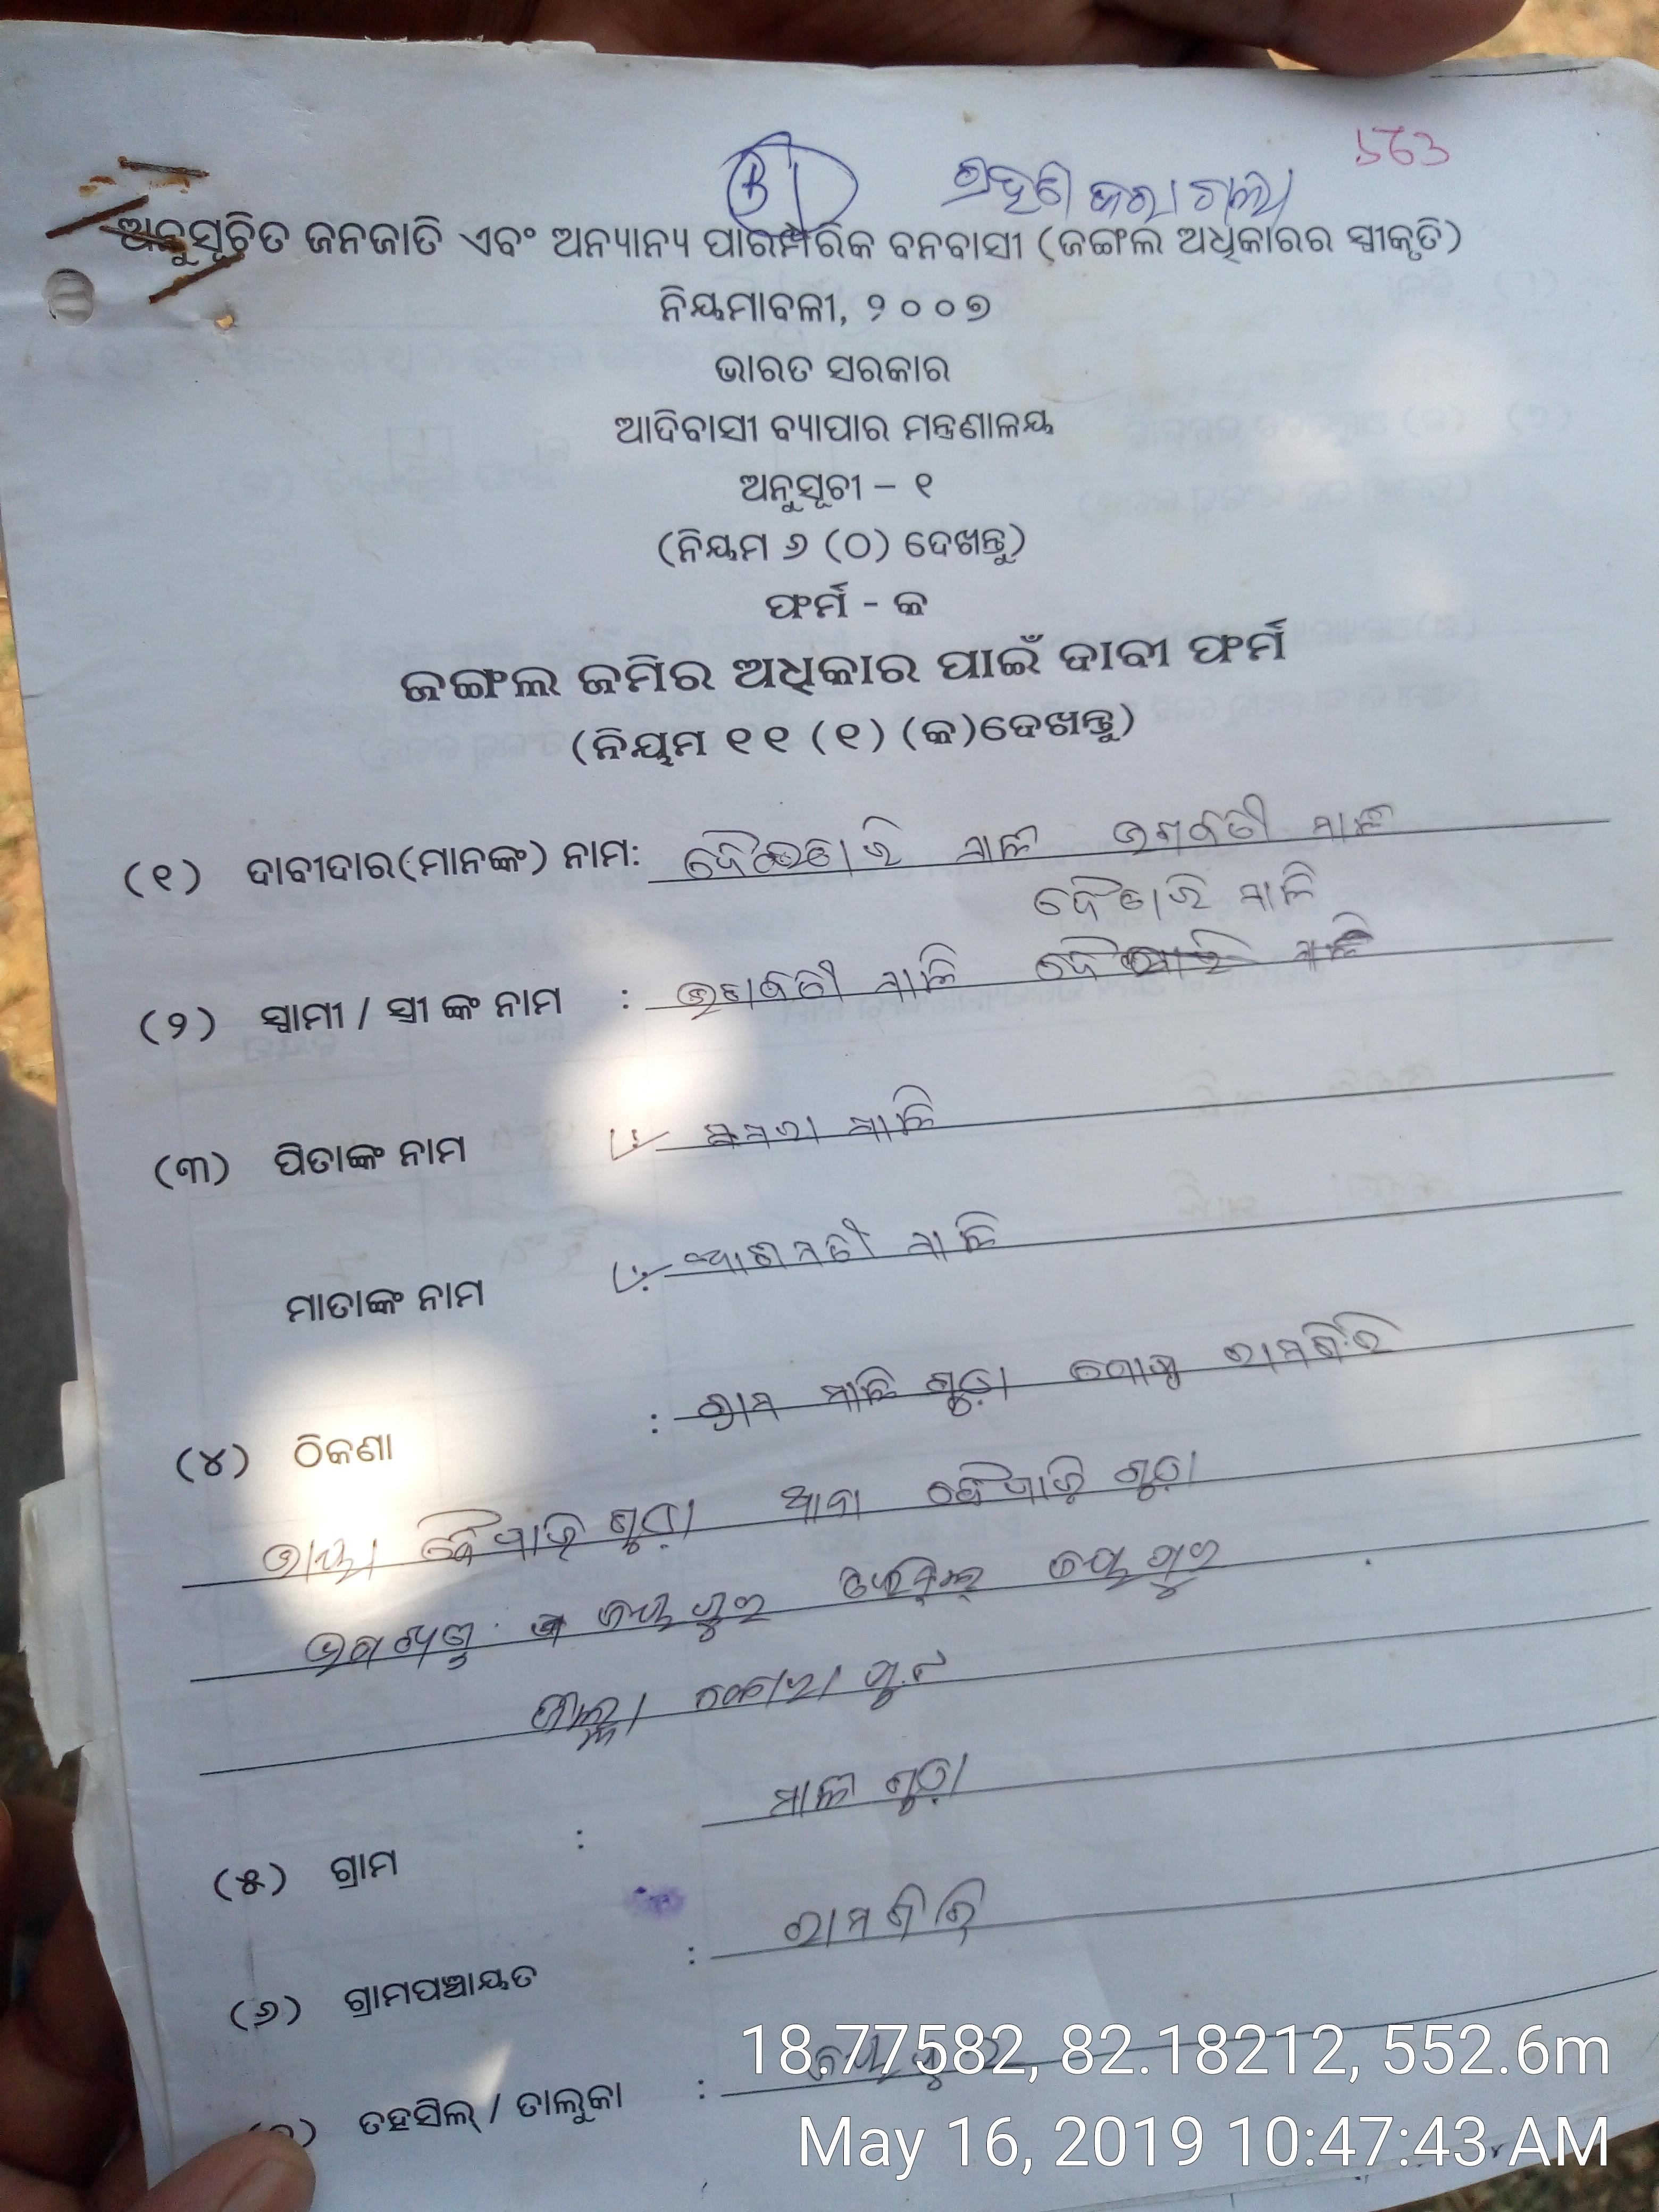 ୨୫୩
ଗ୍ରହଣ କରାଗଲା
ଅନୁସୂଚିତ ଜନଜାତି ଏବଂ ଅନ୍ୟାନ୍ୟ ପାରମ୍ପରିକ ବନବାସୀ (ଜଙ୍ଗଲ ଅଧିକାରର ସ୍ୱୀକୃତି)
ନିୟମାବଳୀ, ୨୦୦୭
ଭାରତ ସରକାର
ଆଦିବାସୀ ବ୍ୟାପାର ମନ୍ତ୍ରଣାଳୟ
ଅନୁସୂଚୀ – ୧
(ନିୟମ ୬ (ଠ) ଦେଖନ୍ତୁ)
ଫର୍ମ - କ
ଜଙ୍ଗଲ ଜମିର ଅଧିକାର ପାଇଁ ଦାବୀ ଫର୍ମ
(ନିୟମ ୧୧ (୧) (କ)ଦେଖନ୍ତୁ)
(୧) ଦାବୀଦାର(ମାନଙ୍କ) ନାମ: ମାଳି ଭଗବତୀ ମାଳି
ଦୈତାରି ମାଳି
(୨) ସ୍ୱାମୀ / ସ୍ତ୍ରୀ ଙ୍କ ନାମ : ଭଗବତୀ ମାଳି
(୩) ପିତାଙ୍କ ନାମ : ମାଳି
ମାତାଙ୍କ ନାମ : ମାଳି
(୪) ଠିକଣା : ଗ୍ରାମ ମାଳି ଗୁଡ଼ା ପୋଷ୍ଟ ରାମଗିରି
ଭାୟା ବୈପାରିଗୁଡ଼ା ଥାନା ବୈପାରିଗୁଡ଼ା
ଜୟପୁର ତହସିଲ୍ ଜୟପୁର
ଜିଲ୍ଲା କୋରାପୁଟ
(୫) ଗ୍ରାମ : ମାଳି ଗୁଡ଼ା
(୬) ଗ୍ରାମପଞ୍ଚାୟତ : ରାମଗିରି
ତହସିଲ୍ / ତାଲୁକା : ଜୟପୁର
18.77582, 82.18212, 552.6m
May 16, 2019 10:47:43 AM